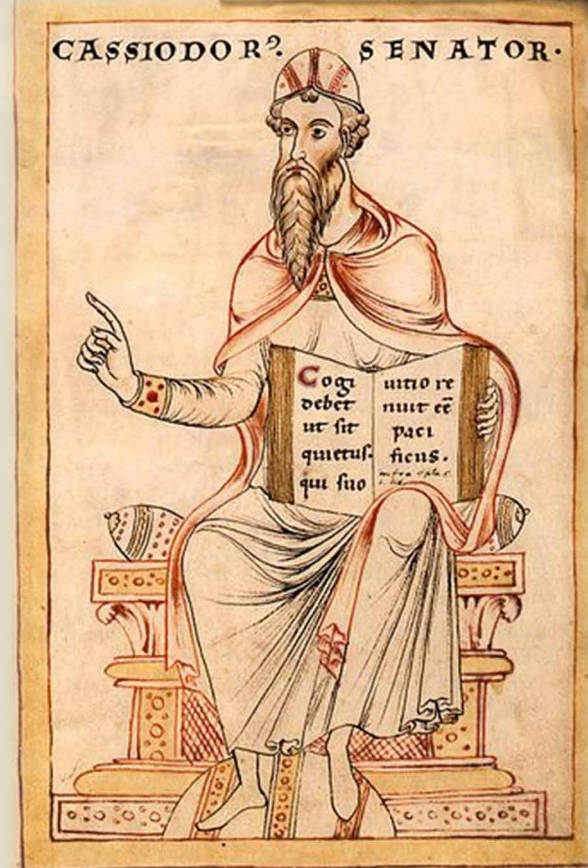 CASSIODORꝰ. SENATOR·
Cogi
debet
ut sit
quietus.
qui suo
uitio re
nuit eē
paci
ficus.